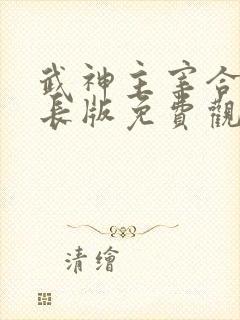 武神主宰合
長版免費觀
清繪